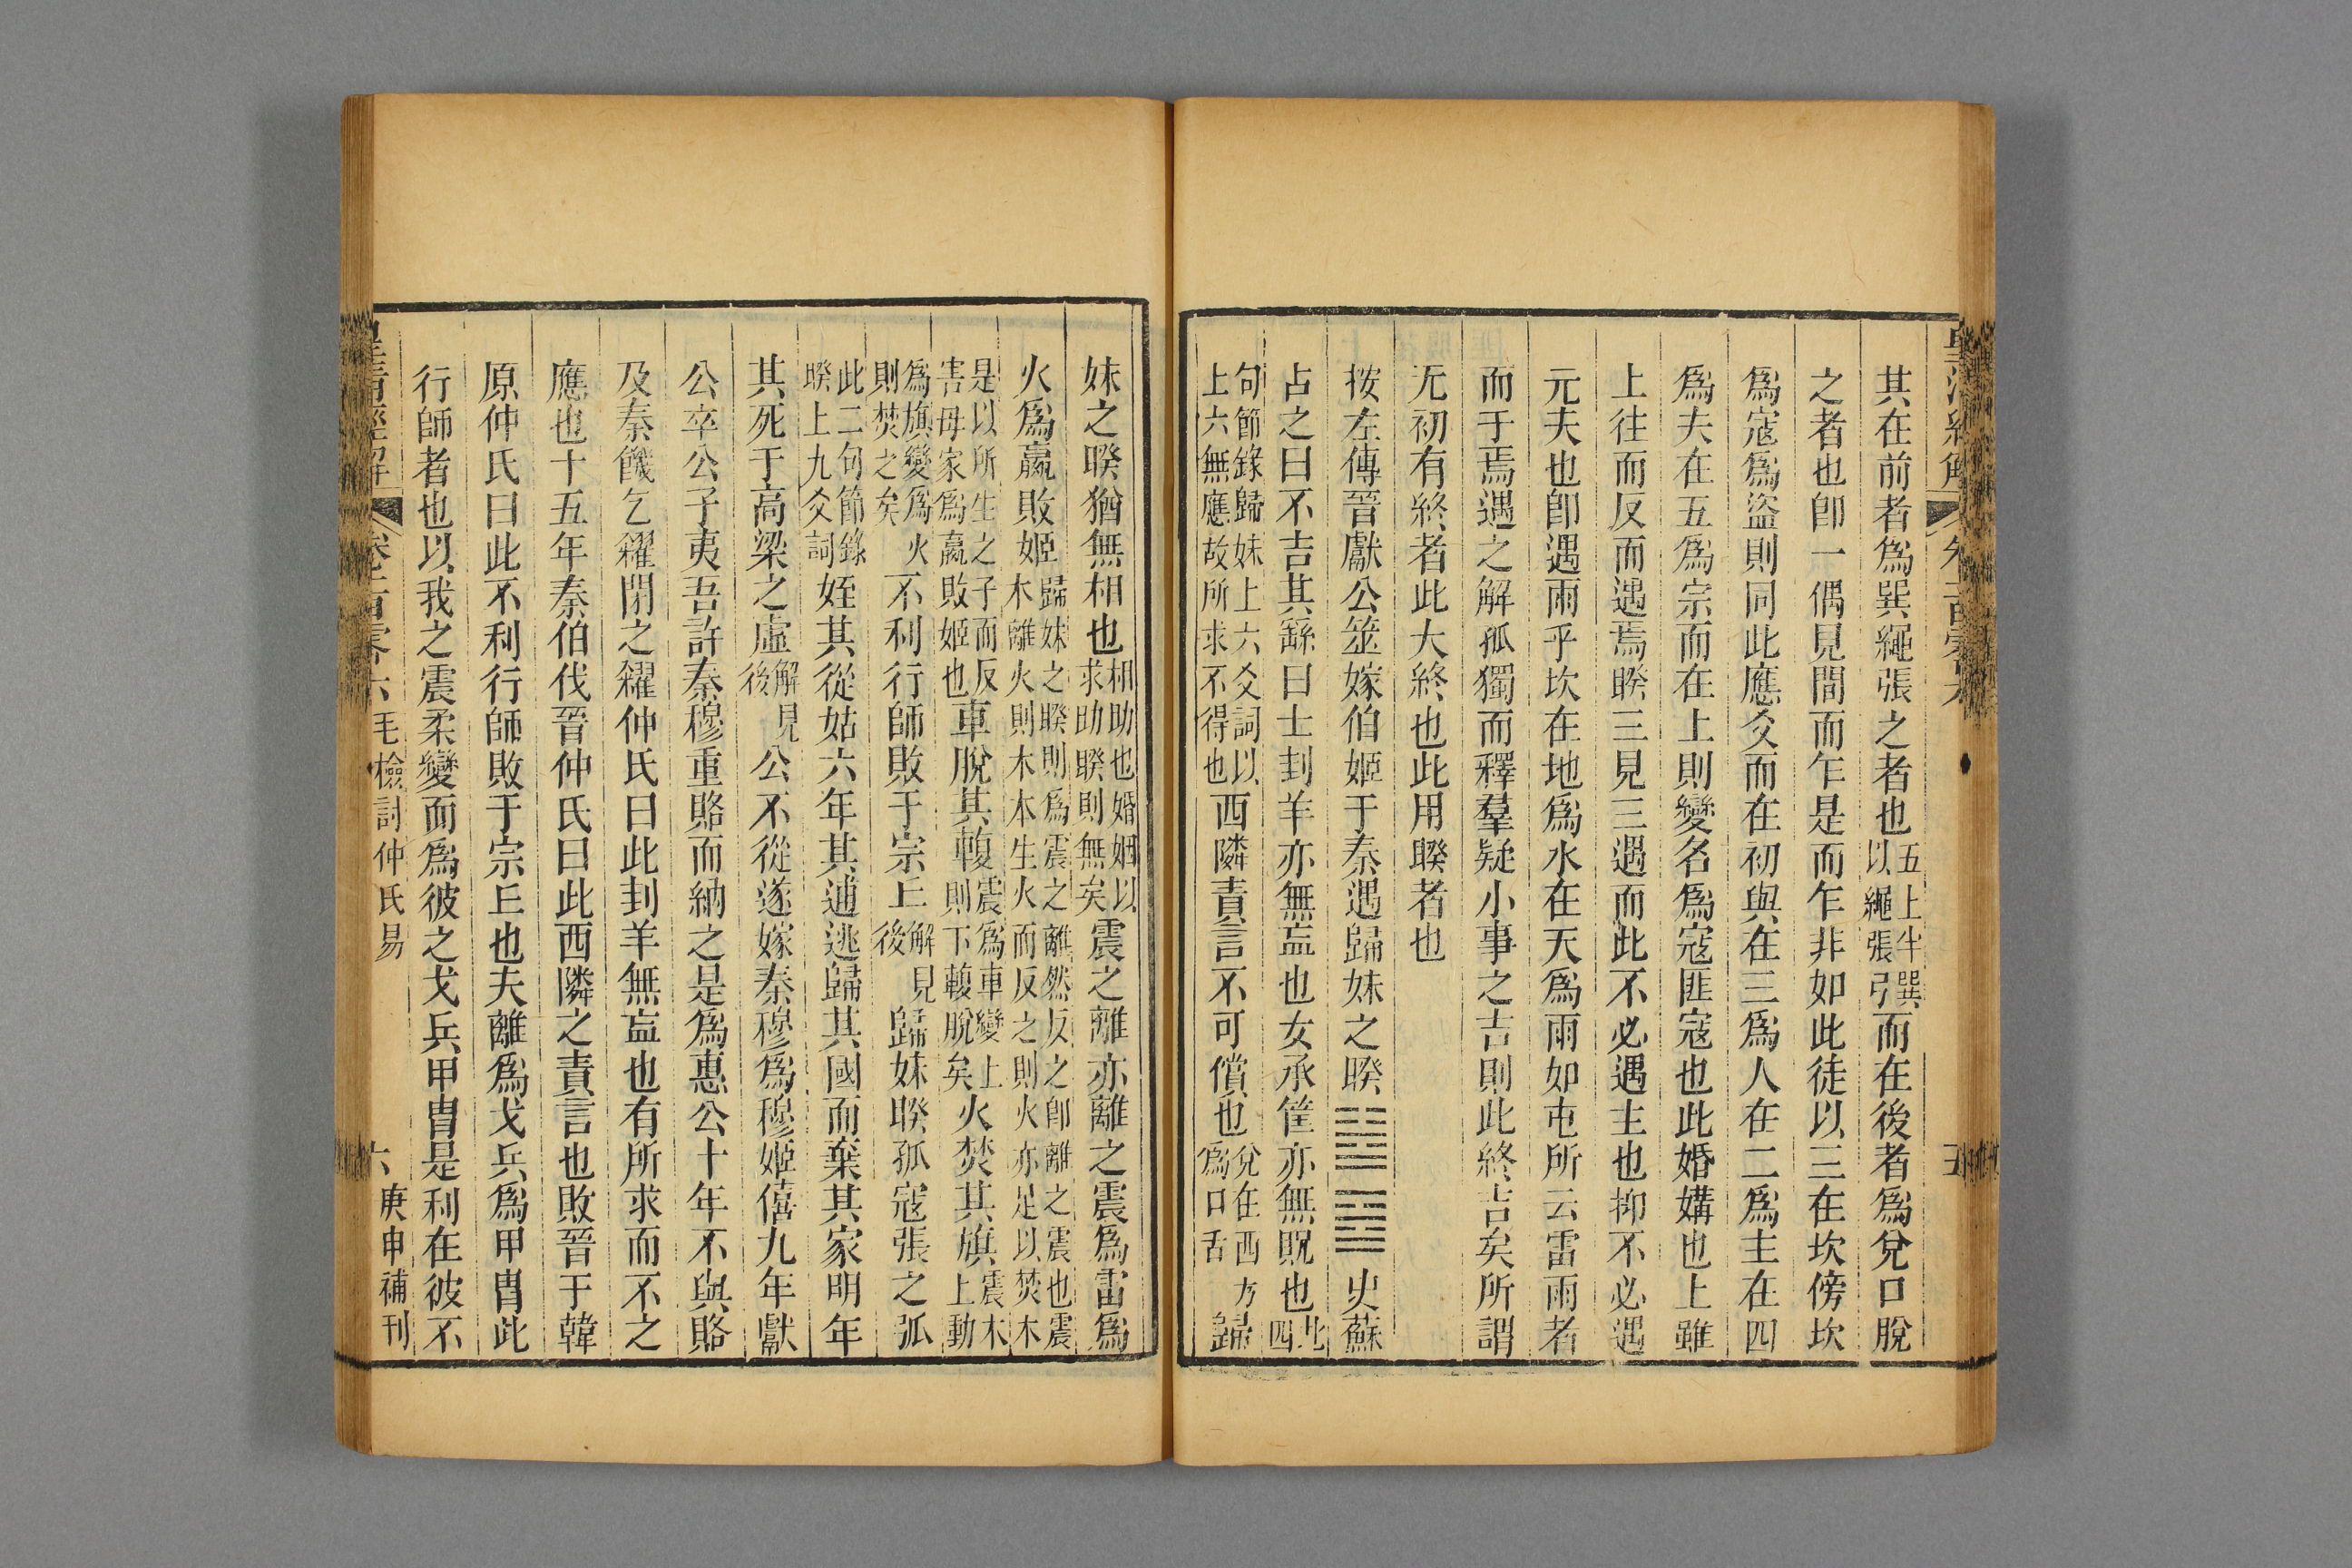 其在前者爲巽繩張之者也五上半巽以繩張弓而在後者爲兌口脫
之者也卽一偶見間而乍是而乍非如此徒以三在坎傍坎
爲寇爲盜則同此應爻而在初與在三爲人在二爲主在四
爲夫在五爲宗而在上則變名爲寇匪寇也此婚媾也上雖
上往而反而遇焉睽三見三遇而此不必遇主也抑不必遇
元夫也卽遇雨乎坎在地爲水在天爲雨如屯所云雷雨者
而于焉遇之解孤獨而釋羣疑小事之吉則此終吉矣所謂
无初有終者此大終也此用睽者也
按左傳晉獻公筮嫁伯姬于秦遇歸妹之睽䷵䷥史蘇
占之曰不吉其繇曰士刲羊亦無衁也女承筐亦無貺也此四
句節錄歸妹上六爻詞以上六無應故所求不得也西隣責言不可償也兌在西方爲口舌歸
妹之睽猶無相也相助也婚姻以求助睽則無矣震之離亦離之震爲雷爲
火爲嬴敗姬歸妹之睽則爲震之離然反之卽離之震也震木離火則木本生火而反之則火亦足以焚木
是以所生之子而反害母家爲嬴敗姬也車脫其輹震爲車變上則下輹脫矣火焚其旗震木上動
爲旗變爲火則焚之矣不利行師敗于宗丘解見後歸妹睽孤寇張之弧
此二句節錄睽上九爻詞姪其從姑六年其逋逃歸其國而棄其家明年
其死于高梁之虛解見後公不從遂嫁秦穆爲穆姬僖九年獻
公卒公子夷吾許秦穆重賂而納之是爲惠公十年不與賂
及秦饑乞糴閉之糴仲氏曰此刲羊無衁也有所求而不之
應也十五年秦伯伐晉仲氏曰此西隣之責言也敗晉于韓
原仲氏曰此不利行師敗于宗丘也夫離爲戈兵爲甲胄此
行師者也以我之震柔變而爲彼之戈兵甲胄是利在彼不
皇清經解 卷一百零六 毛檢討仲氏易 六 庚申補刊